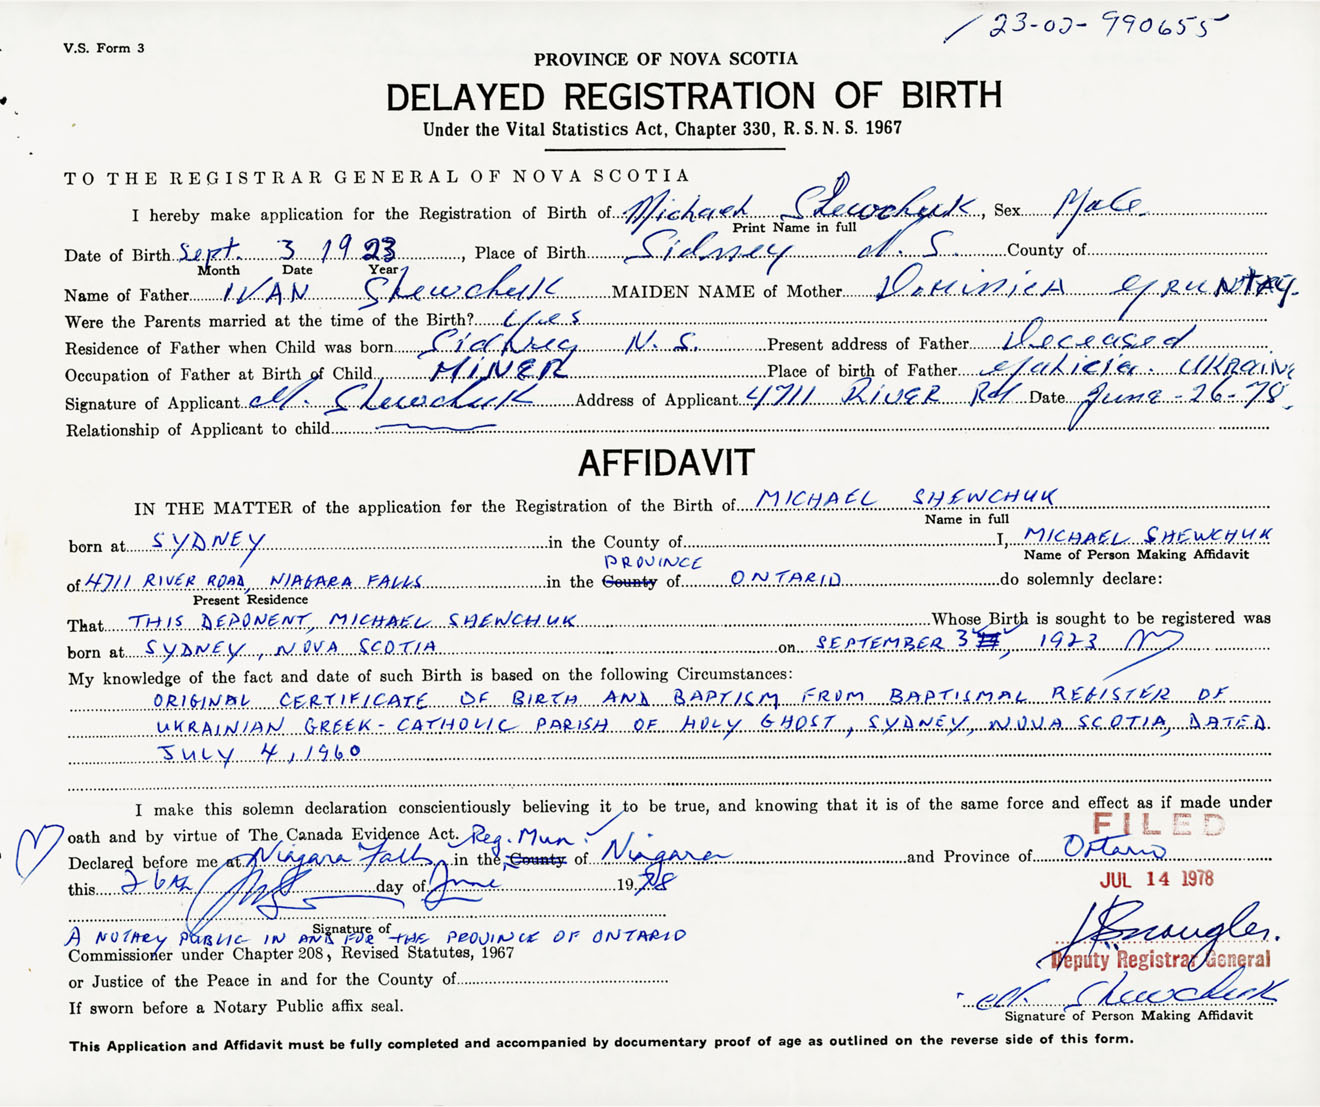 123-02-990655
V.S. Form 3
PROVINCE OF NOVA SCOTIA
DELAYED REGISTRATION OF BIRTH
Under the Vital Statistics Act, Chapter 330, R.S.N.S. 1967
TO THE REGISTRAR GENERAL OF NOVA SCOTIA
I hereby make application for the Registration of Birth of Michael Shewchuk, Sex Male
Print Name in full
Date of Birth Sept. 3 1923, Place of Birth Sidney N.S. County of
Month Date Year
Name of Father IVAN Shewchuk MAIDEN NAME of Mother Dominica
Were the Parents married at the time of the Birth? Yes
Residence of Father when Child was born Sidney N.S. Present address of Father Deceased
Occupation of Father at Birth of Child MINER Place of birth of Father Galicia. UKRAINE
Signature of Applicant M. Shewchuk Address of Applicant 4711 RIVER Rd Date June-26-78.
Relationship of Applicant to child
AFFIDAVIT
IN THE MATTER of the application for the Registration of the Birth of MICHAEL SHEWCHUK
Name in full
born at SYDNEY in the County of I, MICHAEL SHEWCHUK
Name of Person Making Affidavit
PROVINCE
of 4711 RIVER ROAD, NIAGARA FALLS in the County of ONTARIO do solemnly declare:
Present Residence
That THIS DEPONENT, MICHAEL SHEWCHUK Whose Birth is sought to be registered was
born at SYDNEY, NOVA SCOTIA on SEPTEMBER 3, 1923
My knowledge of the fact and date of such Birth is based on the following Circumstances:
ORIGINAL CERTIFICATE OF BIRTH AND BAPTISM FROM BAPTISMAL REGISTER OF
UKRAINIAN GREEK-CATHOLIC PARISH OF HOLY GHOST, SYDNEY, NOVA SCOTIA, DATED
JULY 4, 1960
I make this solemn declaration conscientiously believing it to be true, and knowing that it is of the same force and effect as if made under
oath and by virtue of The Canada Evidence Act.
FILED
Reg. Mun.
Declared before me at Niagara Falls in the County of Niagara and Province of Ontario
this 26th day of June 1978
JUL 14 1978
Signature of
A NOTARY PUBLIC IN AND FOR THE PROVINCE OF ONTARIO
Commissioner under Chapter 208, Revised Statutes, 1967
Deputy Registrar General
or Justice of the Peace in and for the County of
M. Shewchuk
If sworn before a Notary Public affix seal.
Signature of Person Making Affidavit
This Application and Affidavit must be fully completed and accompanied by documentary proof of age as outlined on the reverse side of this form.